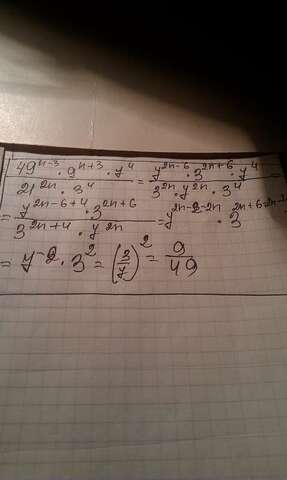 49^{n-3} · 9^{n+3} · 7^4 / 21^{2n} · 3^4 = 7^{2n-6} · 3^{2n+6} · 7^4 / 3^{2n} · 7^{2n} · 3^4 =
= 7^{2n-6+4} · 3^{2n+6} / 3^{2n+4} · 7^{2n} = 7^{2n-2-2n} · 3^{2n+6-2n-
= 7^{-2} · 3^2 = (3/7)^2 = 9/49